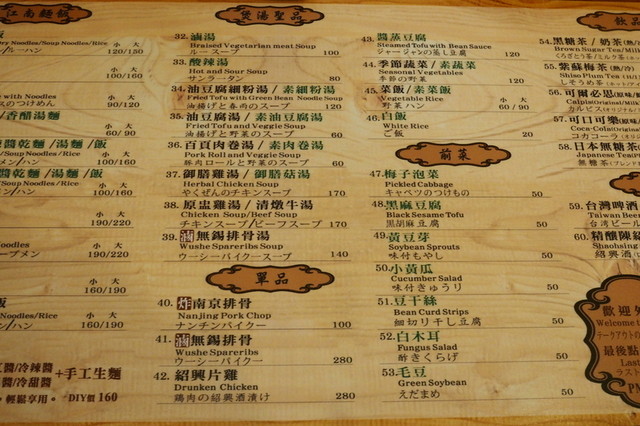 江南麵飯
Dry Noodles/Soup Noodles/Rice 小 大
ン/ハン 120/150
100/160
with Noodles 小 大
スのつけめん 90/120
/香醋湯麵
oup Noodles/Rice 小 大
ン/ハン 60/90
醬乾麵/湯麵/飯
100/160
醬乾麵/湯麵/飯
Soup Noodles/Rice 小 大
100/160
oodles 小 大
ープメン 190/220
小 大
140/190
小 大
160/190
飯
oodles/Rice 小 大
/ハン 160/190
醬/冷辣醬
醬/冷甜醬
+手工生麵
輕鬆享用。 DIY價 160
煲湯聖品
32. 滷湯
Braised Vegetarian meat Soup
ルースープ 100
33. 酸辣湯
Hot and Sour Soup
サンラータン 80
34. 油豆腐細粉湯/素細粉湯
Fried Tofu with Green Bean Noodle Soup
油揚げと春雨のスープ 120
35. 油豆腐湯/素油豆腐湯
Fried Tofu and Veggie Soup
油揚げと野菜のスープ 60
36. 百頁肉卷湯/素肉卷湯
Pork Roll and Veggie Soup
豚肉ロールと野菜のスープ 60
37. 御膳雞湯/御膳菇湯
Herbal Chicken Soup
やくぜんのチキンスープ 170
38. 原盅雞湯/清燉牛湯
Chicken Soup/Beef Soup
チキンスープ/ビーフスープ 170
39. 滷無錫排骨湯
Wushe Spareribs Soup
ウーシーパイクースープ 340
單品
40. 炸南京排骨
Nanjing Pork Chop
ナンチンパイクー 100
41. 滷無錫排骨
Wushe Spareribs
ウーシーパイクー 280
42. 紹興片雞
Drunken Chicken
鶏肉の紹興酒漬け 280
43. 醬蒸豆腐
Steamed Tofu with Bean Sauce
ジャージャンの蒸し豆腐 120
44. 季節蔬菜/素蔬菜
Seasonal Vegetables
季節の野菜 120
45. 菜飯/素菜飯
Vegetable Rice 小 大
野菜ハン 60/90
46. 白飯
White Rice
ご飯 20
前菜
47. 梅子泡菜
Pickled Cabbage
キャベツのつけもの 50
48. 黑麻豆腐
Black Sesame Tofu
黒胡麻豆腐 50
49. 黃豆芽
Soybean Sprouts
味付もやし 50
50. 小黃瓜
Cucumber Salad
味付きゅうり 50
51. 豆干絲
Bean Curd Strips
細切り干し豆腐 50
52. 白木耳
Fungus Salad
酢きくらげ 50
53. 毛豆
Green Soybean
えだまめ 50
飲品
54. 黑糖茶/奶茶
Brown Sugar Tea/Milk
くろざとう茶/ミルク茶
55. 紫蘇梅茶
Shiso Plum Tea
しそうめ茶
56. 可爾必思
Calpis
カルピス
57. 可口可樂
Coca-Cola
コカコーラ
58. 日本無糖茶
Japanese Tea
無糖茶
59. 台灣啤酒
Taiwan Beer
台湾ビール
60. 精釀陳紹
Shaohsing
紹興酒
歡迎外
Welcome
テークアウトの
最後點
Last
ラスト